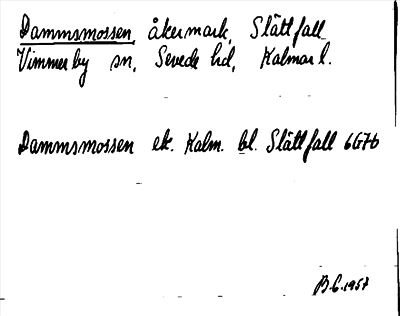 Dammsmossen, åkermark, Slättfall
Vimmerby sn, Sevede hd, Kalmar l.
Dammsmossen ek. Kalm. bl. Slättfall 6G7b
B.C. 1957